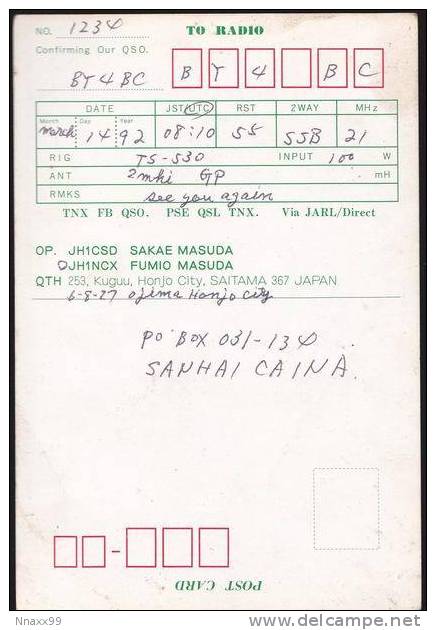 NO. 1234 TO RADIO
Confirming Our QSO.
BY4BC B Y 4 B C
DATE JST/UTC RST 2WAY MHz
Month Day Year
March 14 92 08:10 55 SSB 21
RIG TS-530 INPUT 100 W
ANT GP mH
RMKS see you again
TNX FB QSO. PSE QSL TNX. Via JARL/Direct
OP. JH1CSD SAKAE MASUDA
JH1NCX FUMIO MASUDA
QTH 253, Kuguu, Honjo City, SAITAMA 367 JAPAN
6-8-27 ojima Honjo city
PO BOX 031-134
SANHAI CAINA.
POST CARD
Nnaxx99
delcampe.net